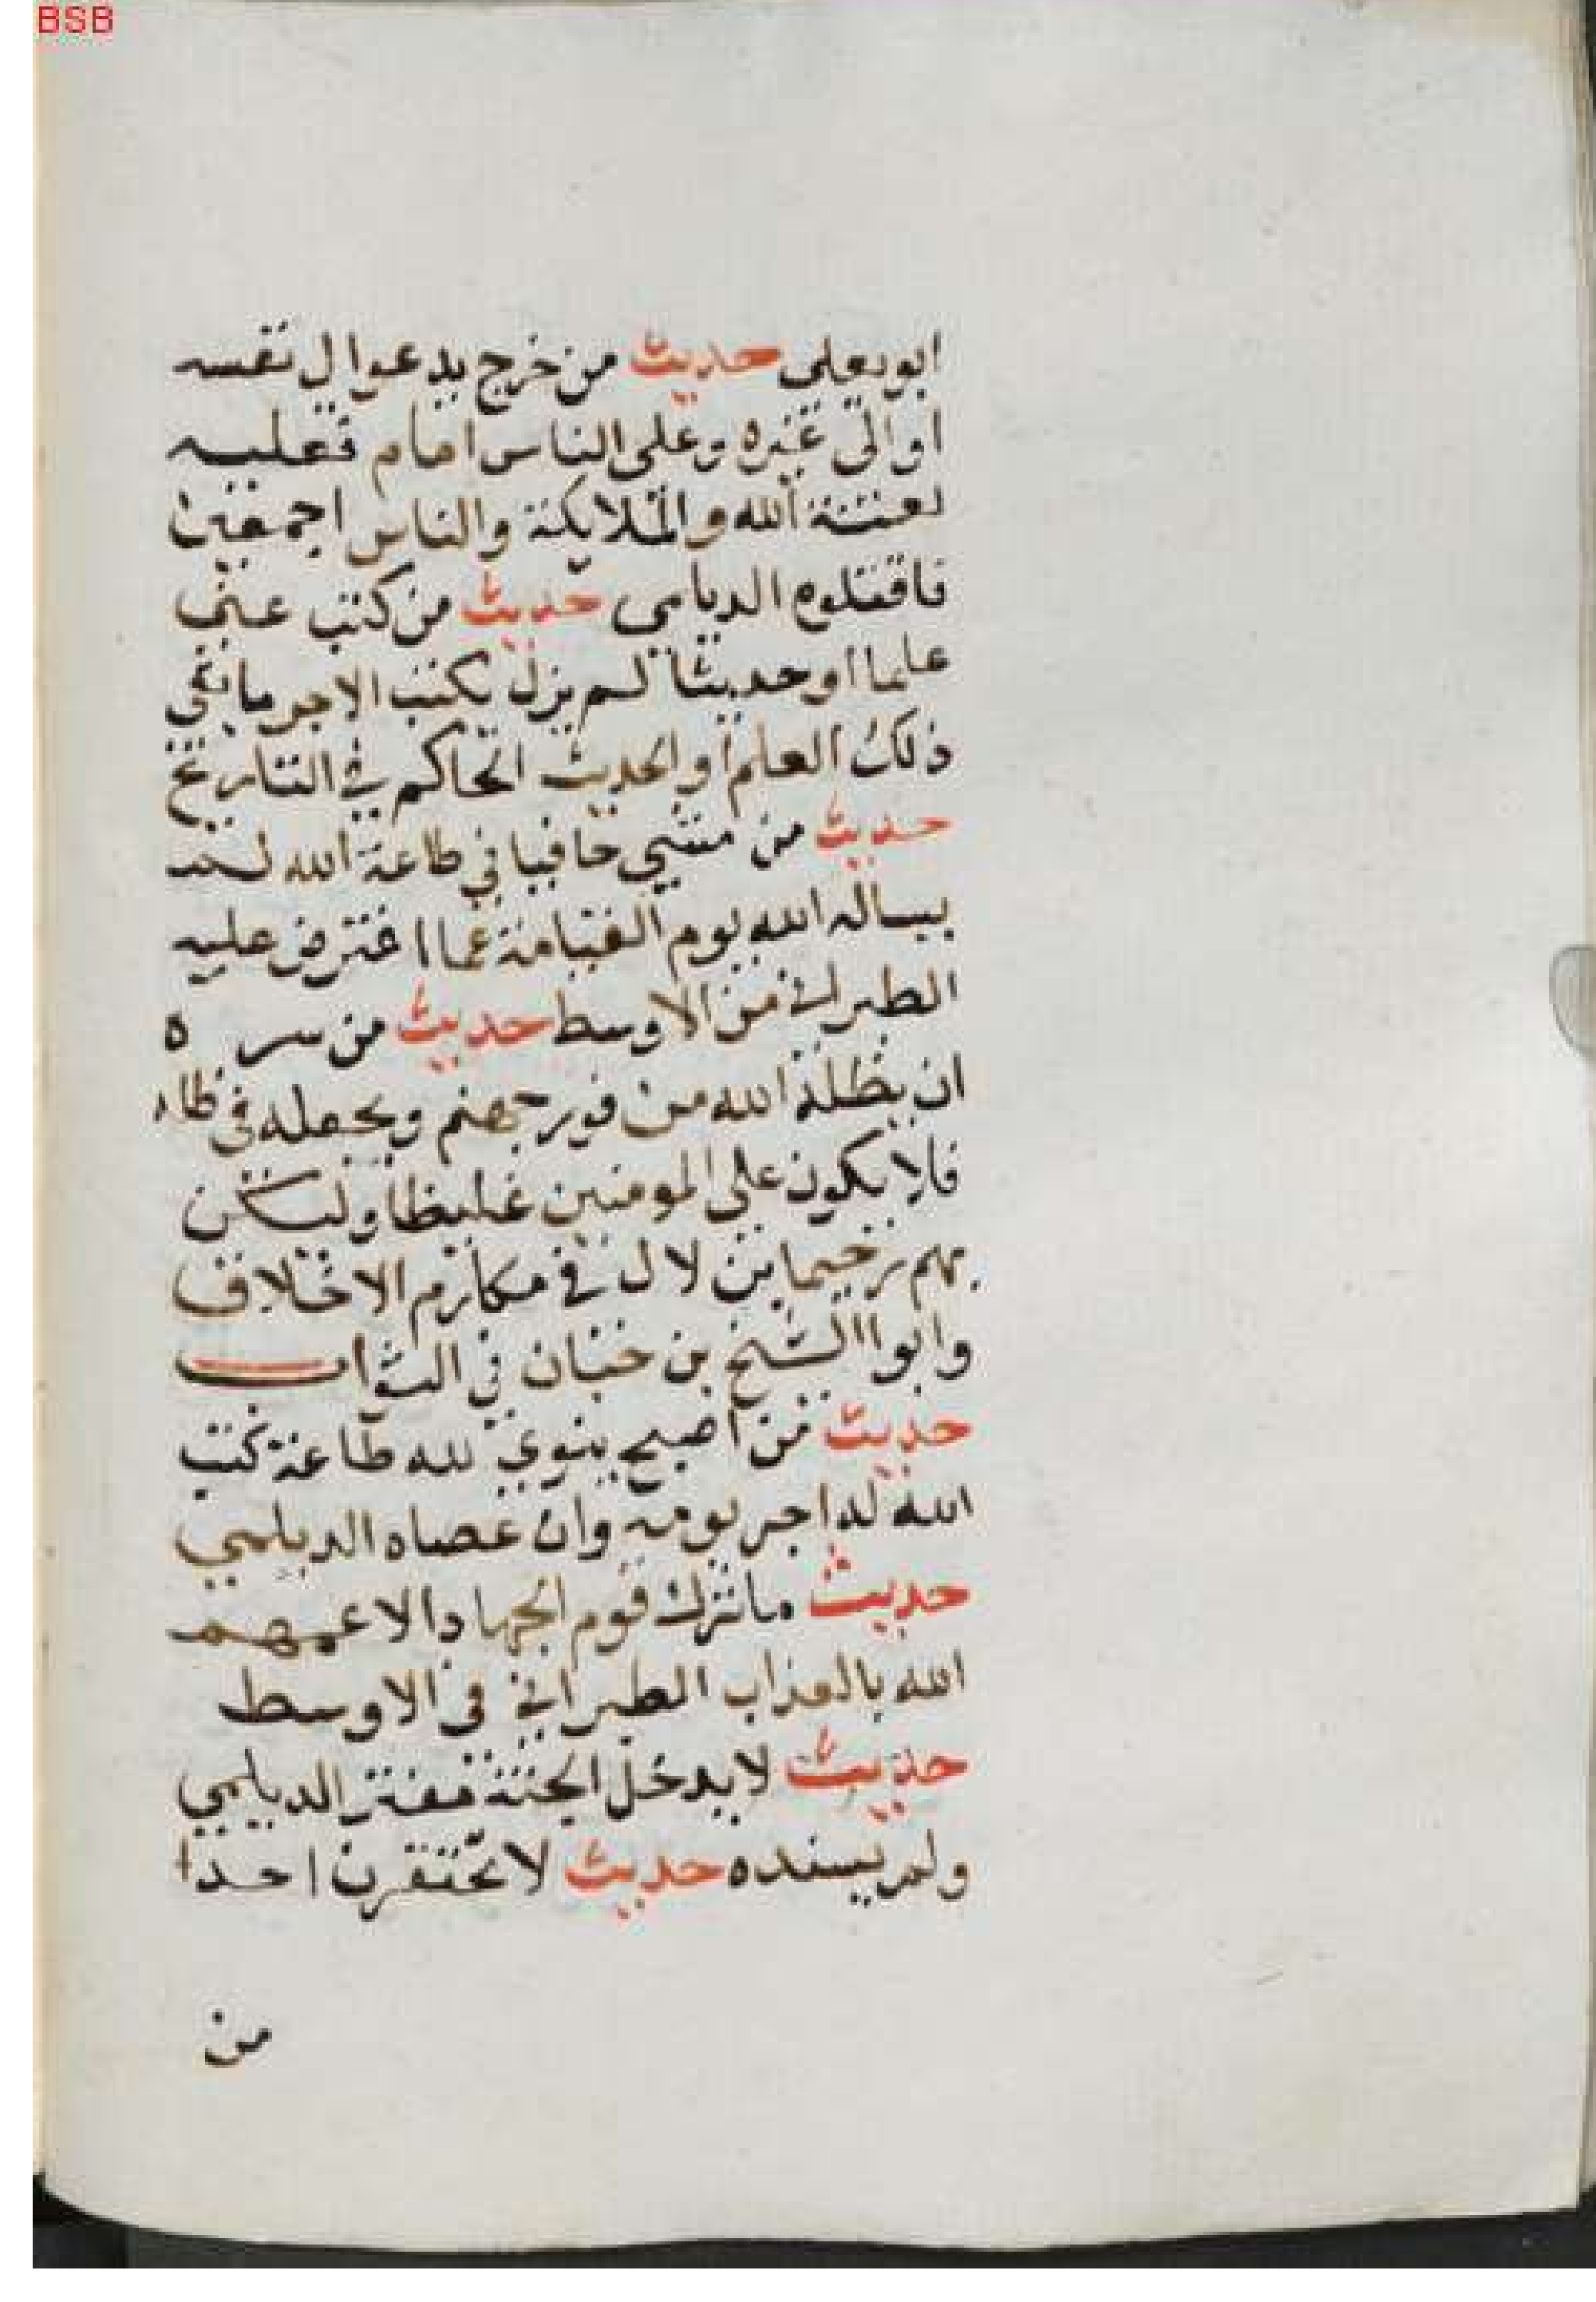 BSB
ابو يعلى حديث من خرج يدعوا ل نفسه
او الى غيره وعلى الناس امام فعليه
لعنة الله والملايكة والناس اجمعين
فاقتلوه الديلمي حديث من كتب عني
علما او حديثا لم يزل يكتب الاجر ما بقي
ذلك العلم او الحديث الحاكم في التاريخ
حديث من مشي حافيا في طاعة الله لم
يساله الله يوم القيامة عما افترض عليه
الطبراني من الاوسط حديث من سر ه
ان يظله الله من فور جهنم ويجعله في ظله
فلا يكون على المومنين غليظا وليكن
بهم رحيما بن لال في مكارم الاخلاق
وابوا الشيخ بن حبان في الثواب
حديث من اصبح ينوي لله طاعة كتب
الله له اجر يومه وان عصاه الديلمي
حديث ما ترك قوم الجهاد الا عمهم
الله بالعذاب الطبراني في الاوسط
حديث لا يدخل الجنة مفتر الديلمي
ولم يسنده حديث لا تحتقرن احدا
من